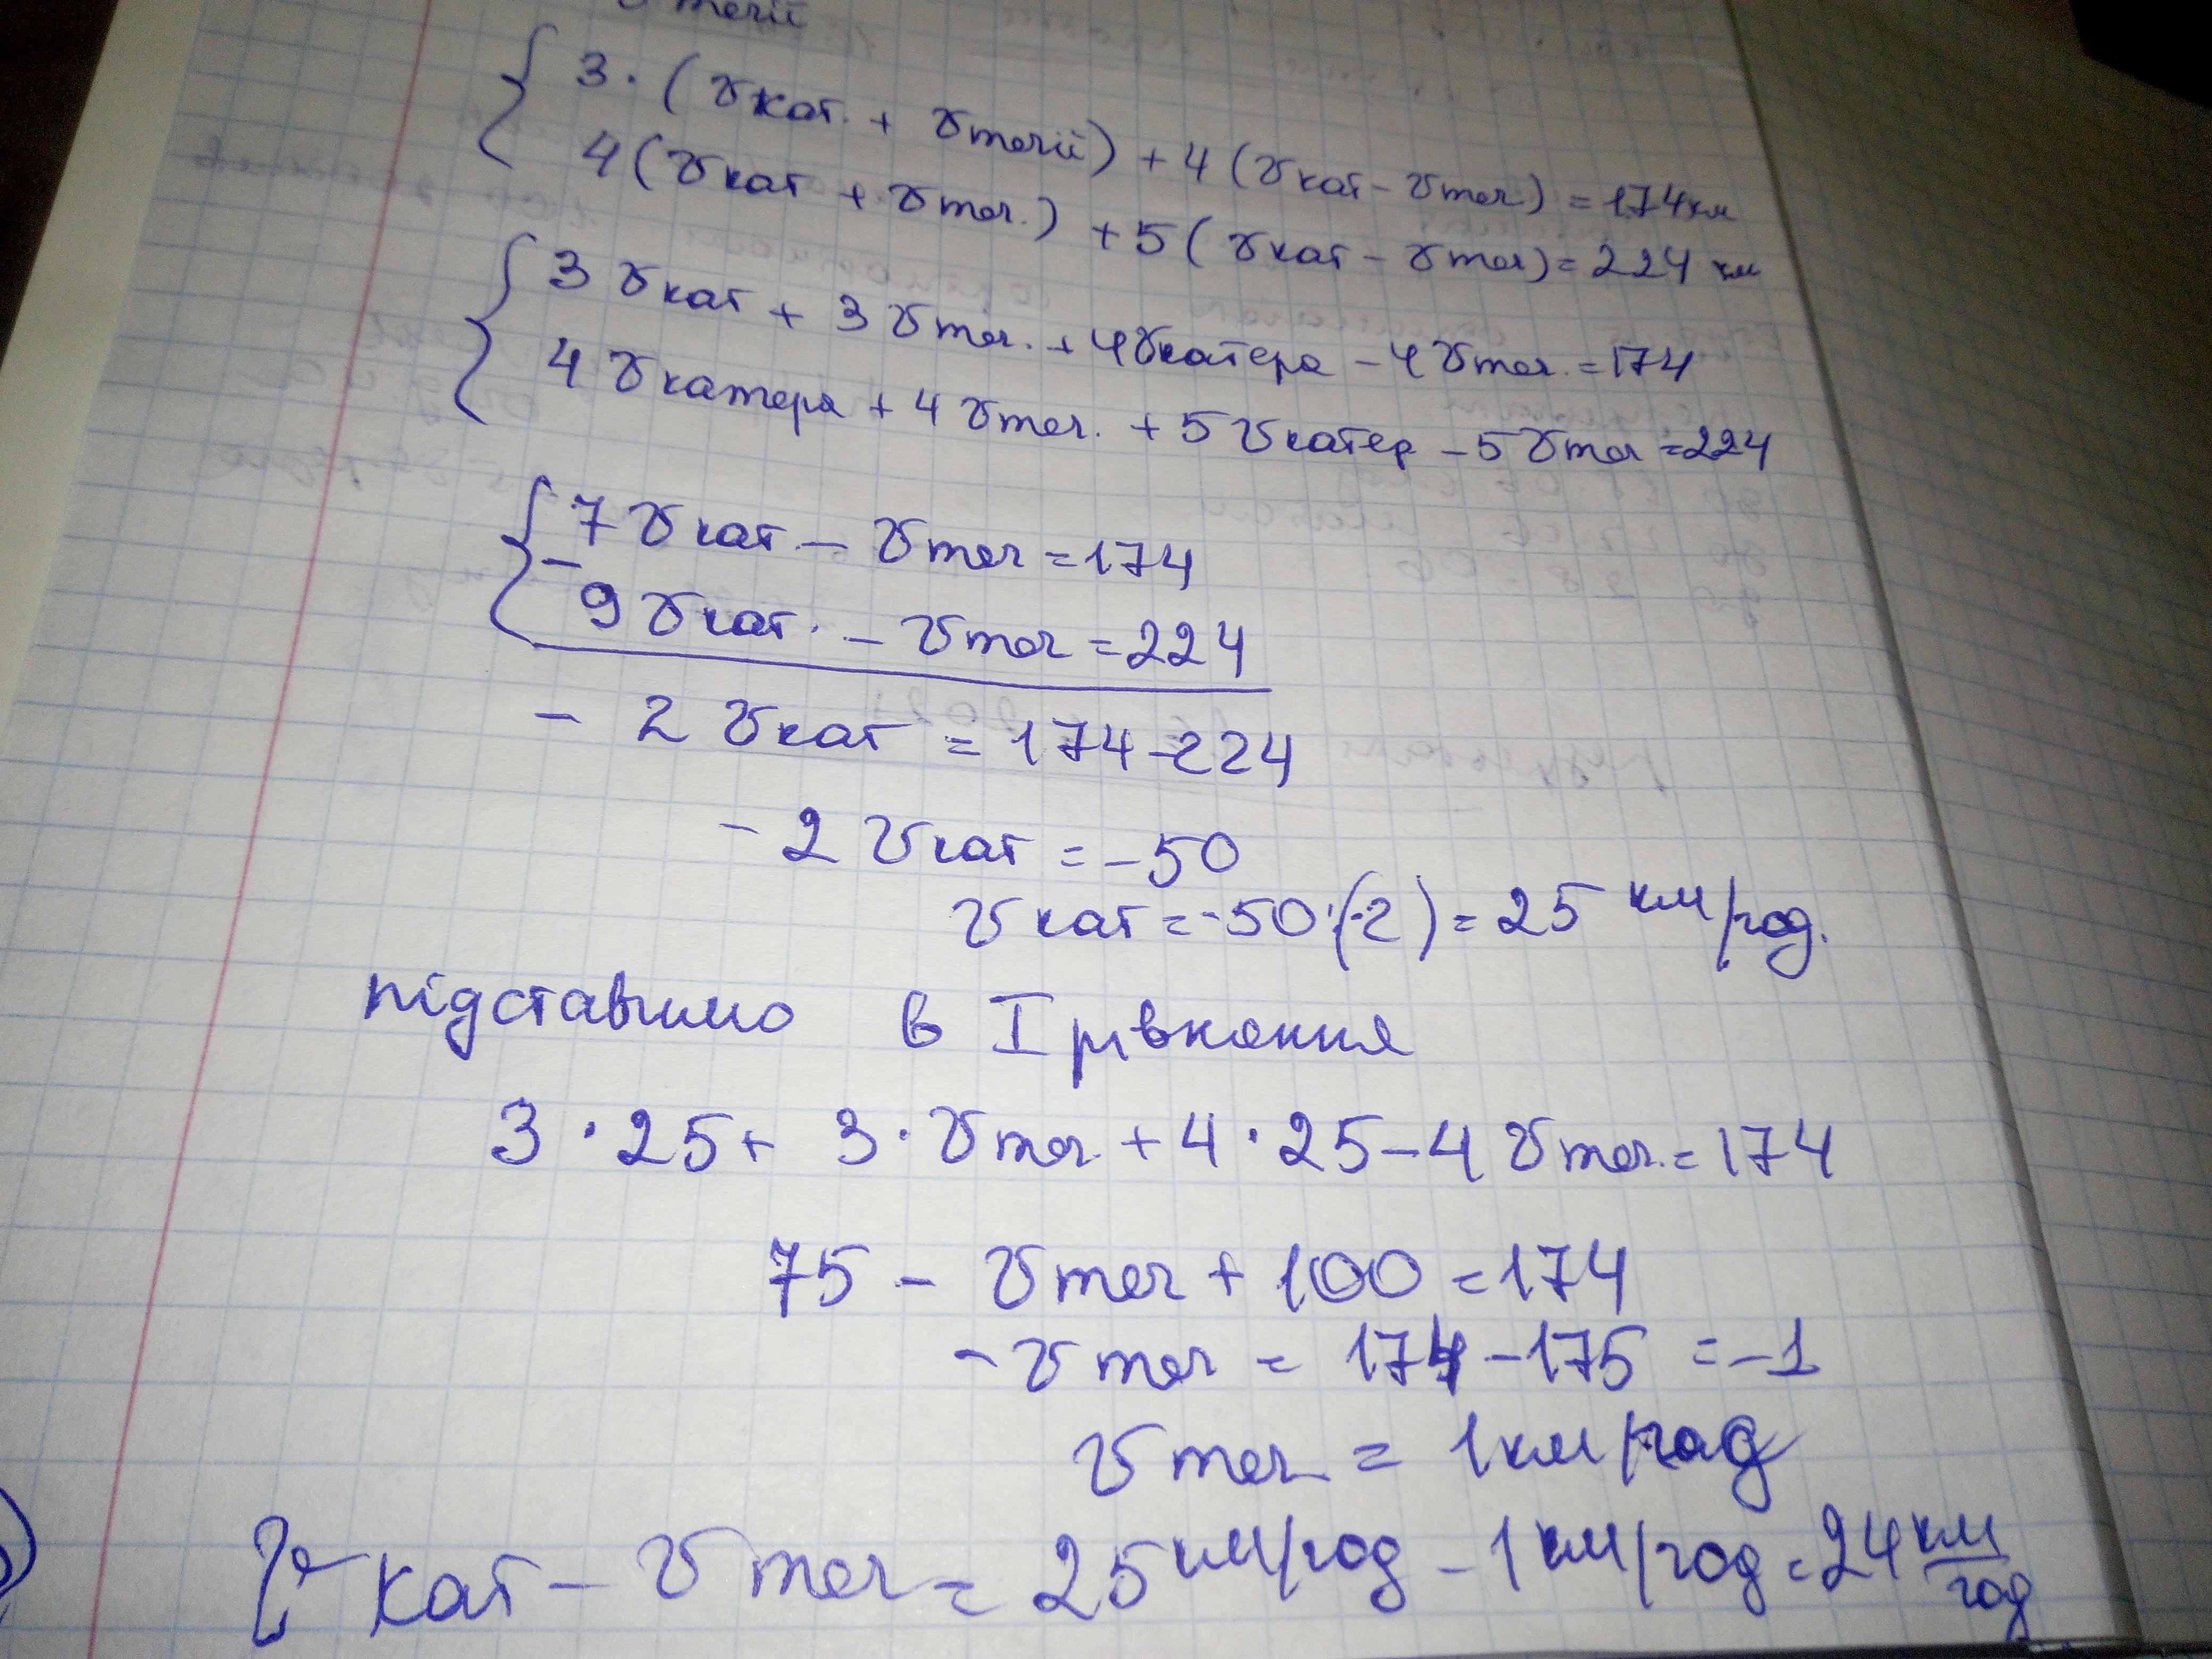 течії
3·(υкат. + υтечії) + 4(υкат - υтеч) = 174км
4(υкат + υтеч.) + 5(υкат - υтеч) = 224 км
3υкат + 3υтеч. + 4υкатера - 4υтеч. = 174
4υкатера + 4υтеч. + 5υкатер - 5υтеч = 224
7υкат - υтеч = 174
- 9υкат. - υтеч = 224
- 2υкат = 174-224
- 2υкат = -50
υкат = -50:(-2) = 25 км/год.
підставимо в I рівняння
3·25 + 3·υтеч. + 4·25 - 4υтеч. = 174
75 - υтеч + 100 = 174
- υтеч = 174 - 175 = -1
υтеч = 1км/год
υкат - υтеч = 25км/год - 1км/год = 24 км/год